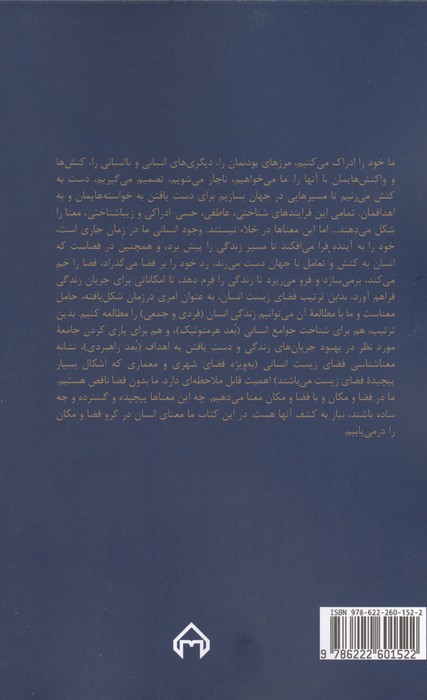 ما خود را ادراک می‌کنیم، مرزهای بودنمان را، دیگری‌های انسانی و ناانسانی را، کنش‌ها
و واکنش‌هایمان با آنها را. ما می‌خواهیم، ناچار می‌شویم، تصمیم می‌گیریم، دست به
کنش می‌زنیم تا مسیرهایی در جهان بسازیم برای دست یافتن به خواسته‌هایمان و به
اهدافمان. تمامی این فرایندهای شناختی، عاطفی، حسی ادراکی و زیباشناختی، معنا را
شکل می‌دهند... اما این معناها در خلاء نیستند. وجود انسانی ما در زمان جاری است،
خود را به آینده فرا می‌افکند تا مسیر زندگی را پیش برد، و همچنین در فضاست که
انسان به کنش و تعامل با جهان دست می‌زند، رد خود را بر فضا می‌گذارد، فضا را خم
می‌کند، برمی‌سازد و فرو می‌ریزد تا زندگی را فرم دهد، تا امکاناتی برای جریان زندگی
فراهم آورد. بدین ترتیب فضای زیست انسان، به عنوان امری درزمان شکل‌یافته، حامل
معناست و ما با مطالعهٔ آن می‌توانیم زندگی انسان (فردی و جمعی) را مطالعه کنیم. بدین
ترتیب، هم برای شناخت جوامع انسانی (بُعد هرمنوتیک)، و هم برای یاری کردن جامعهٔ
مورد نظر در بهبود جریان‌های زندگی و دست یافتن به اهداف (بُعد راهبردی)، نشانه
معناشناسی فضای زیست انسانی (به‌ویژه فضای شهری و معماری که اشکال بسیار
پیچیدهٔ فضای زیست می‌باشند) اهمیت قابل ملاحظه‌ای دارد. ما بدون فضا ناقص هستیم.
ما در فضا و مکان و با فضا و مکان معنا می‌دهیم. چه این معناها پیچیده و گسترده و چه
ساده باشند، نیاز به کشف آنها هست. در این کتاب ما معنای انسان در گرو فضا و مکان
را درمی‌یابیم.
ISBN 978-622-260-152-2
9 786222 601522